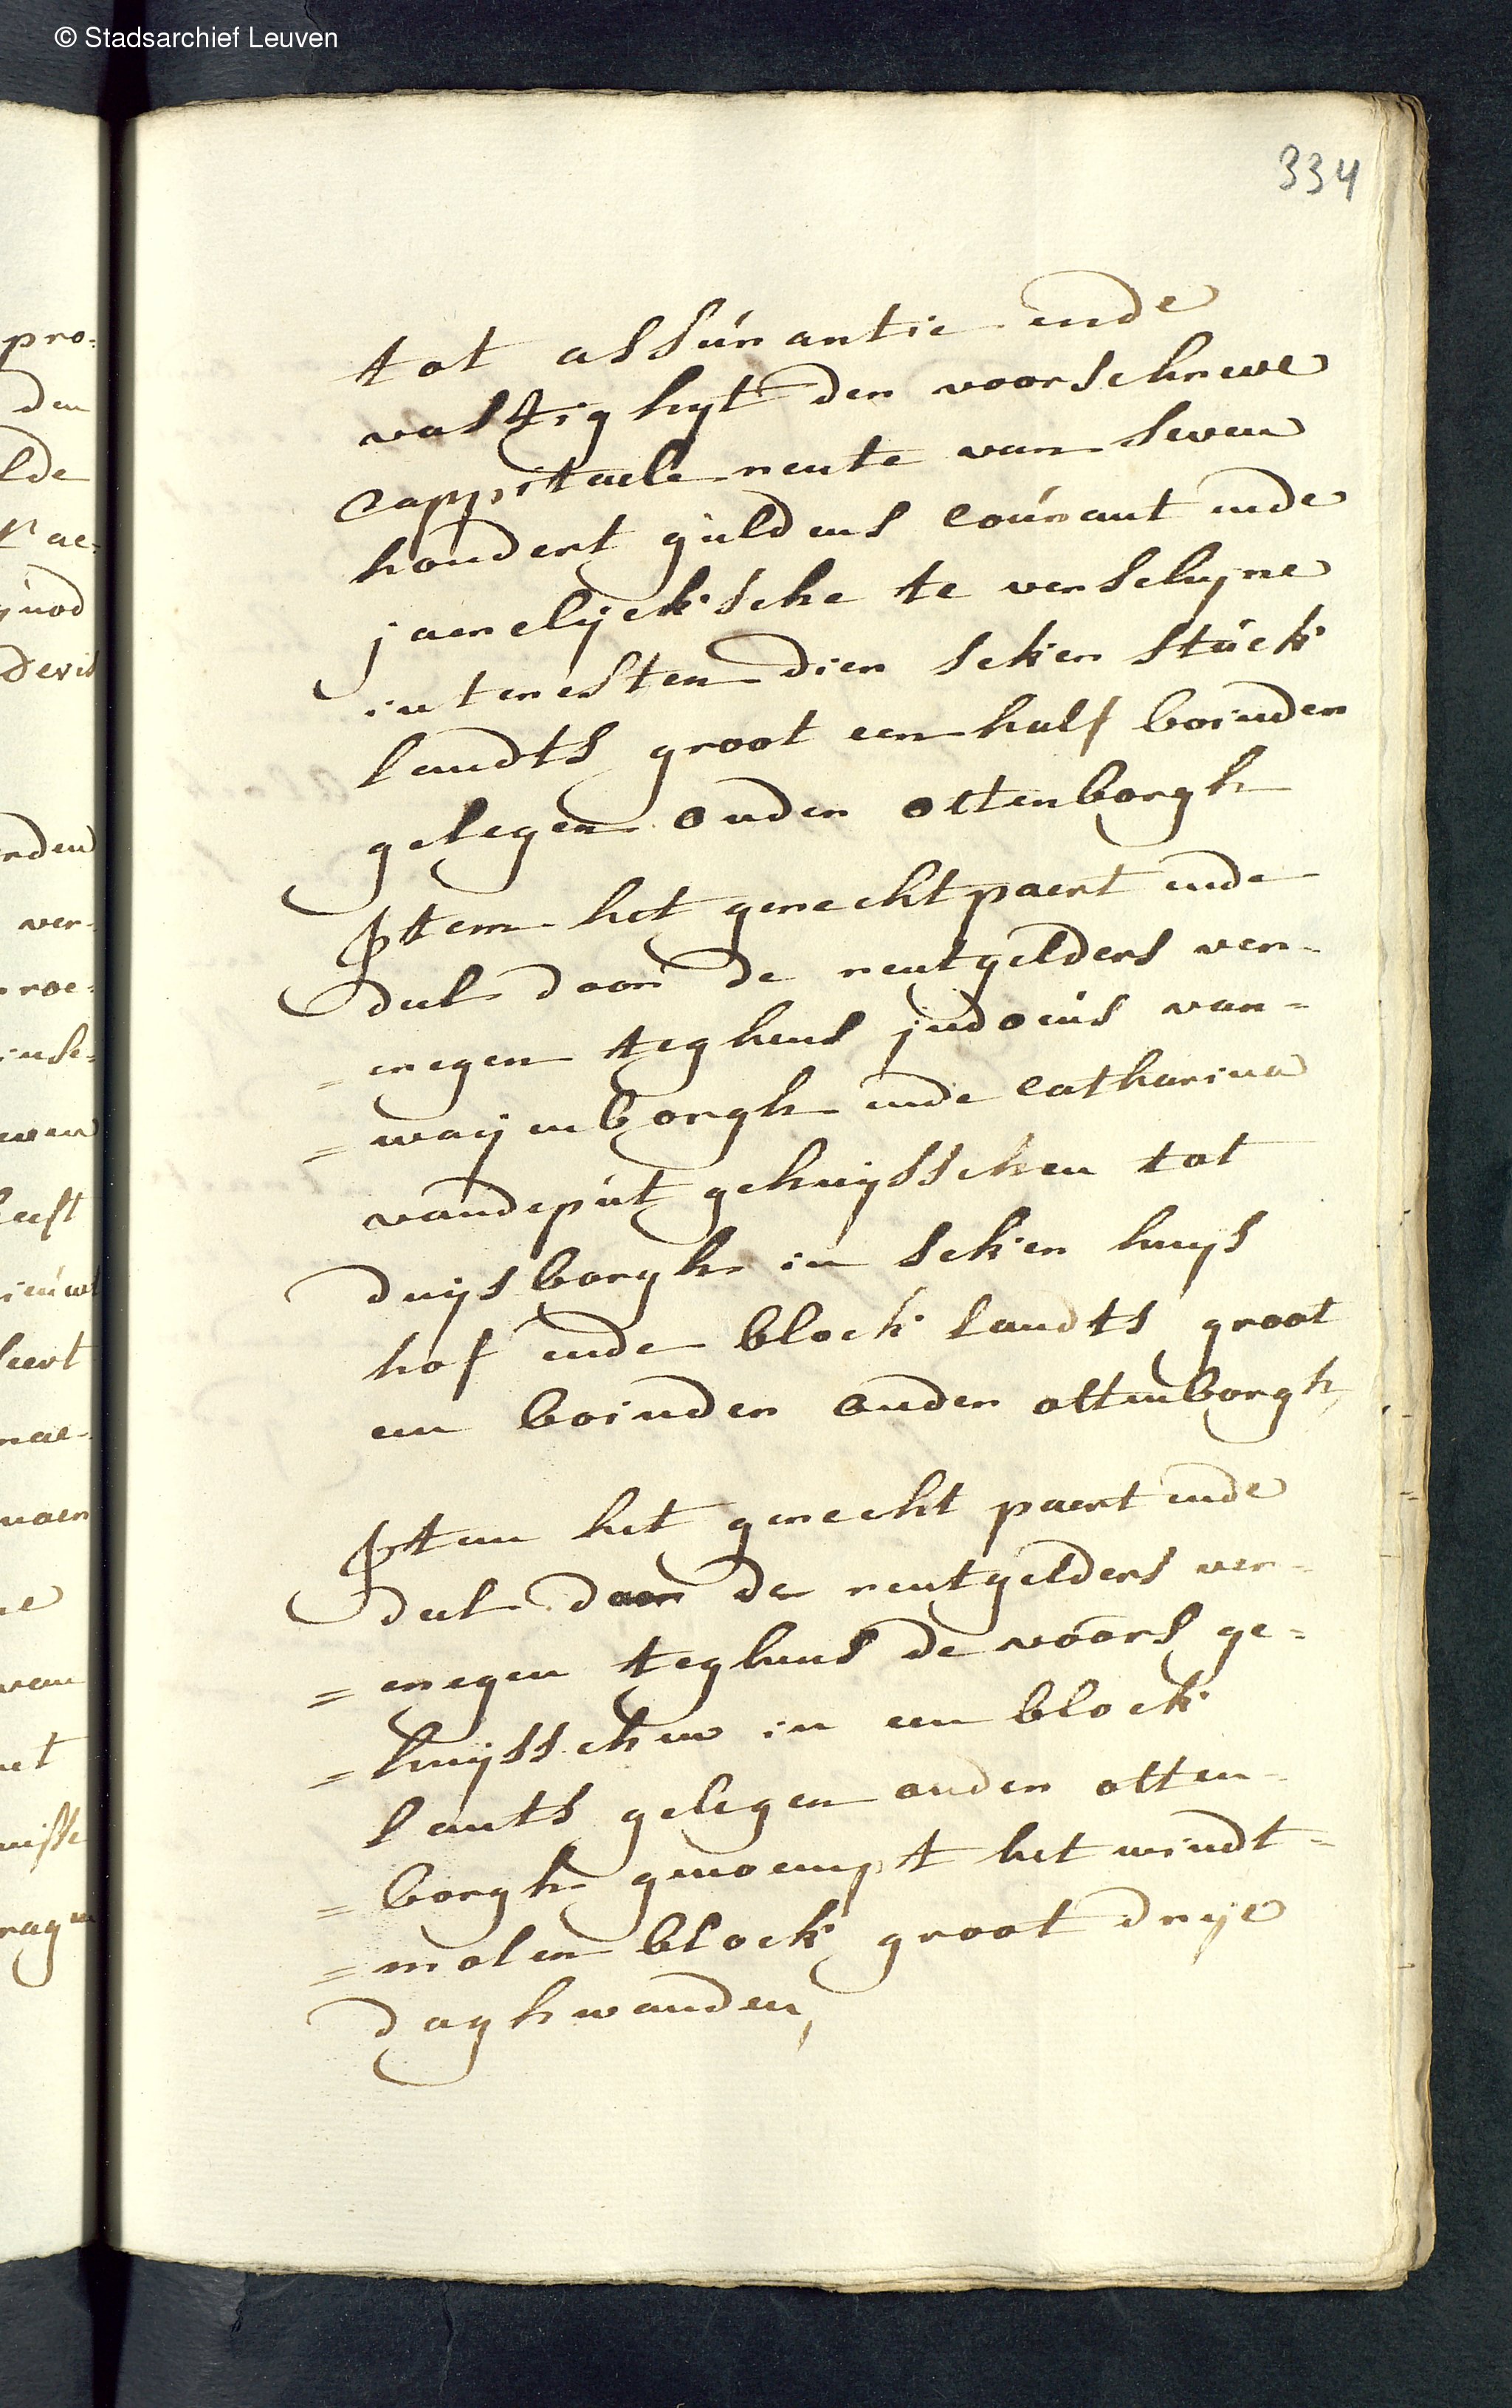 © Stadsarchief Leuven
334
tot assúrantie ende
vastigheyt der voorschreve
cappitaele rente van seven
hondert gúldens coúrant ende
jaerelijcksche te verscheyne
interesten dier seker stúck
landts groot een half boinder
gelegen onder ottenborgh
Item het gerecht paert ende
deel door de rentgelders ver-
=cregen teghens judocús van=
=waijenborgh ende catharina
vandepút gehuijsschen tot
duijsborgh in seker huijs
hof ende block landts groot
een boinder onder ottenborgh,
Item het gerecht paert ende
deel door de rentgelders ver-
=cregen teghens de voors ge=
=huijsschen in een block
lants gelegen onder otten-
=borgh genoempt het windt=
=molen block groot drije
daghwanden,
pro:
den
lde
quod
ver-
roe:
inse:
van